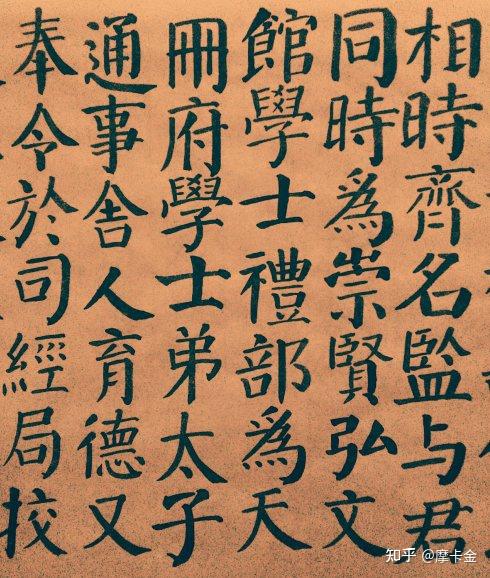 相時齊名監与君
同時爲崇賢弘文
館學士禮部爲天
冊府學士弟太子
通事舍人育德又
奉令於司經局校
知乎 @摩卡金